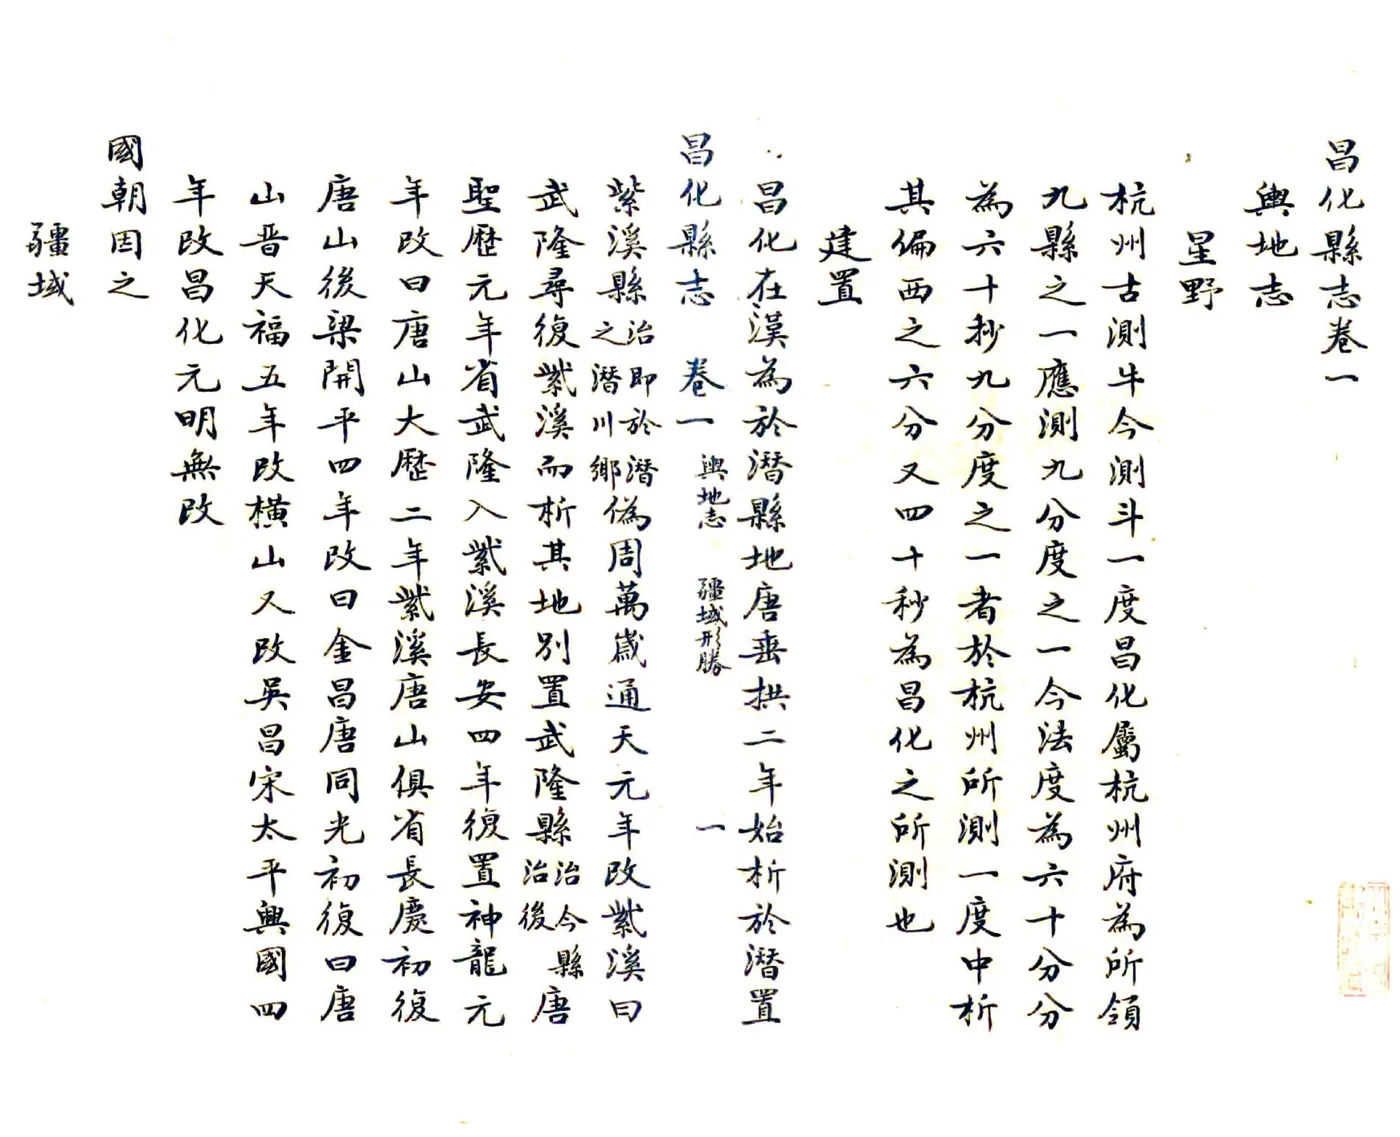 昌化縣志卷一
輿地志
星野
杭州古測牛今測斗一度昌化屬杭州府為所領
九縣之一應測九分度之一今法度為六十分分
為六十秒九分度之一者於杭州所測一度中析
其偏西之六分又四十秒為昌化之所測也
建置
昌化在漢為於潛縣地唐垂拱二年始析於潛置
昌化縣志 卷一 輿地志 疆域形勝 一
紫溪縣治即於潛之潛川鄉偽周萬歲通天元年改紫溪曰
武隆尋復紫溪而析其地別置武隆縣治今縣治後唐
聖歷元年省武隆入紫溪長安四年復置神龍元
年改曰唐山大歷二年紫溪唐山俱省長慶初復
唐山後梁開平四年改曰金昌唐同光初復曰唐
山晉天福五年改橫山又改吳昌宋太平興國四
年改昌化元明無改
國朝因之
疆域